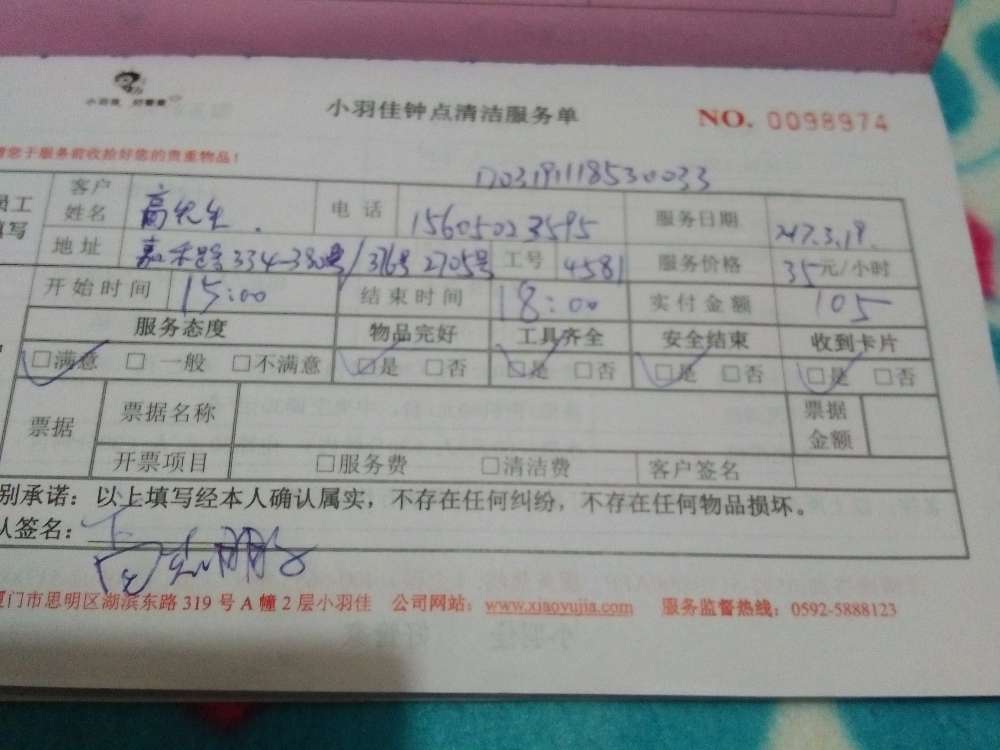 小羽佳 好管家
小羽佳钟点清洁服务单 NO. 0098974
您于服务前收拾好您的贵重物品！
D03191118530033
员工 客户 姓名 高先生 电话 15605023595 服务日期 2017.3.19.
填写 地址 嘉禾路334-380号/376号2705号 工号 4581 服务价格 35元/小时
开始时间 15:00 结束时间 18:00 实付金额 105
服务态度 物品完好 工具齐全 安全结束 收到卡片
☑满意 □ 一般 □不满意 ☑是 □否 ☑是 □否 ☑是 □否 ☑是 □否
票据 票据名称 票据金额
开票项目 □服务费 □清洁费 客户签名
别承诺：以上填写经本人确认属实，不存在任何纠纷，不存在任何物品损坏。
人签名：
厦门市思明区湖滨东路 319 号 A 幢 2 层小羽佳 公司网站：www.xiaoyujia.com 服务监督热线：0592-5888123